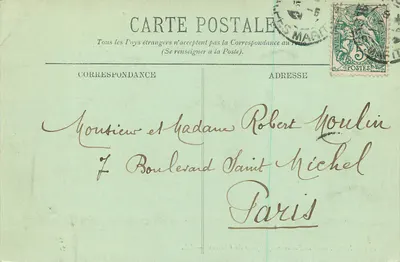 CARTE POSTALE
Tous les Pays étrangers n'acceptent pas la Correspondance au
(Se renseigner à la Poste).
CORRESPONDANCE
ADRESSE
5
POSTES
Monsieur et Madame Robert Moulin
7 Boulevard Saint Michel
Paris